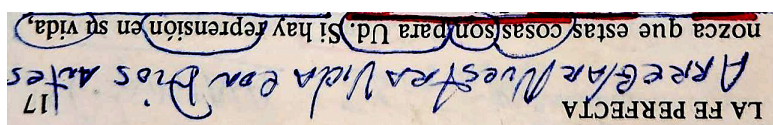 LA FE PERFECTA 17
ARREGLAR NUESTRA VIDA CON DIOS ANTES
nozca que estas cosas son para Ud. Si hay reprensión en su vida,